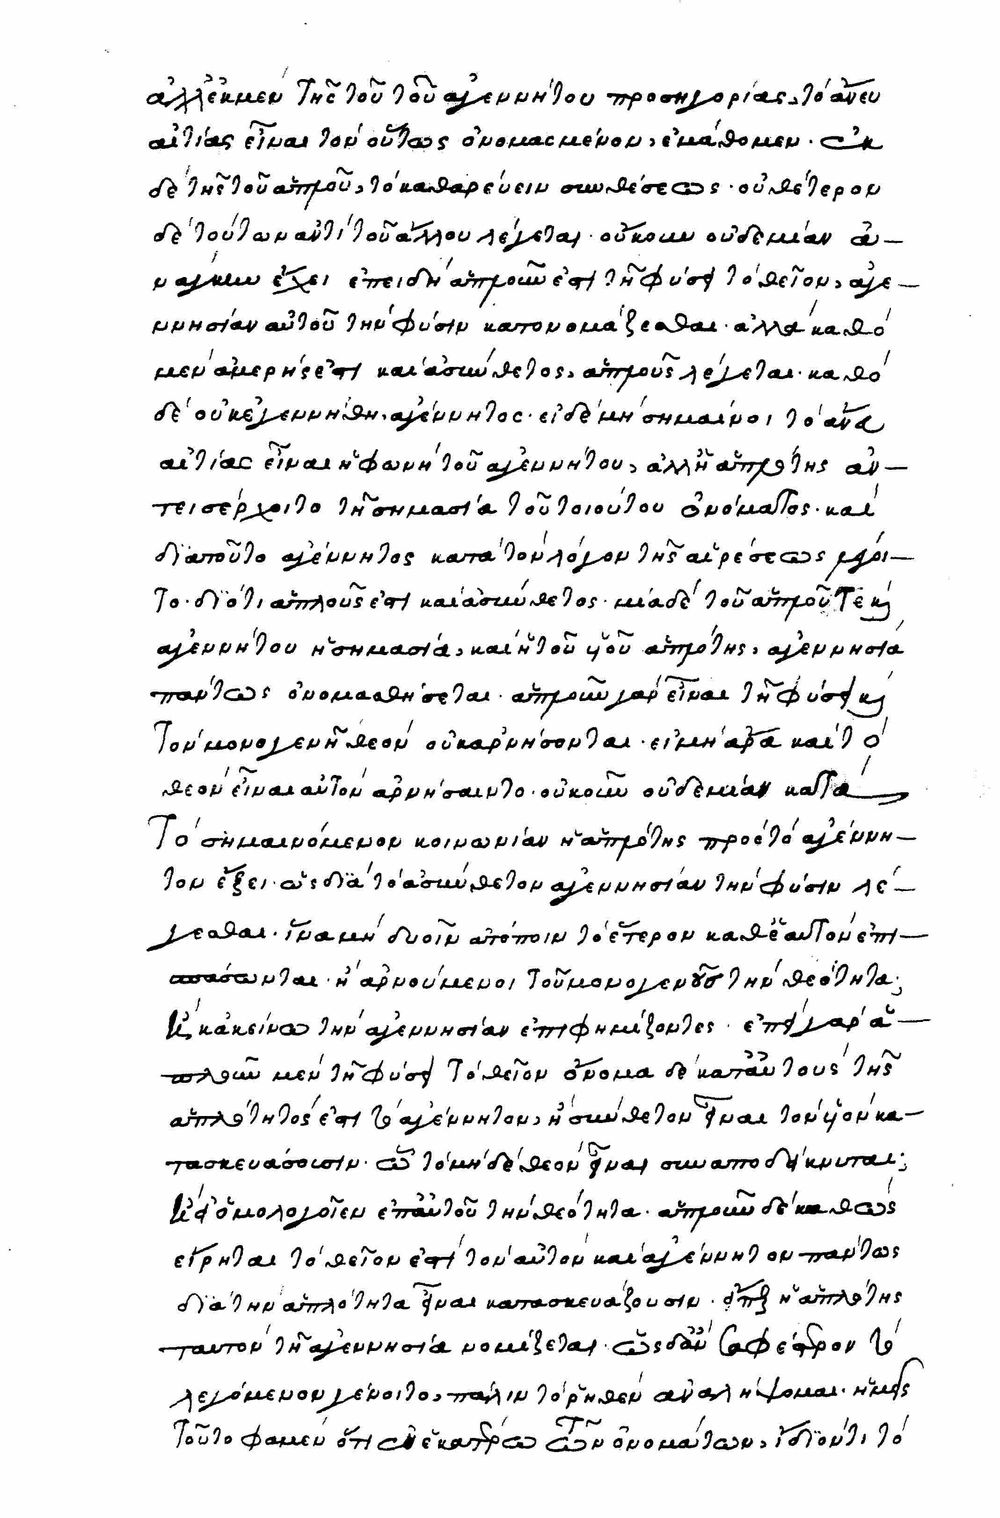 ἀλλ' ἐκ μὲν τῆς τοῦ τοῦ ἀγεννήτου προσηγορίας, τὸ ἄνευ
αἰτίας εἶναι τὸν οὕτως ὀνομασμένον, ἐμάθομεν· ἐκ
δὲ τῆς τοῦ ἁπλοῦ, τὸ καθαρεύειν συνθέσεως· οὐθέτερον
δὲ τούτων ἀντὶ τοῦ ἄλλου λέγεται· οὔκουν οὐδεμίαν ἀ–
νάγκην ἔχει ἐπειδὴ ἁπλοῦν ἐστὶ τῇ φύσει τὸ θεῖον, ἀγε–
ννησίαν αὐτοῦ τὴν φύσιν κατονομάζεσθαι· ἀλλὰ καθὸ
μὲν ἀμερής ἐστι καὶ ἀσύνθετος, ἁπλοῦς λέγεται· καθὸ
δὲ οὐκ ἐγεννήθη, ἀγέννητος· εἰ δὲ μὴ σημαίνοι τὸ ἄνευ
αἰτίας εἶναι ἡ φωνὴ τοῦ ἀγεννήτου, ἀλλ' ἡ ἁπλότης ἀν–
τεισέρχοιτο τῇ σημασίᾳ τοῦ τοιούτου ὀνόματος· καὶ
διατοῦτο ἀγέννητος κατὰ τὸν λόγον τῆς αἱρέσεως λέγοι–
το· διότι ἁπλοῦς ἐστι καὶ ἀσύνθετος· μία δὲ τοῦ ἁπλοῦ τε κὶ
ἀγεννήτου ἡ σημασία, καὶ ἡ τοῦ υἱοῦ ἁπλότης, ἀγεννησία
πάντως ὀνομασθήσεται· ἁπλοῦν γὰρ εἶναι τῇ φύσει κὶ
τὸν μονογενῆ θεὸν οὐκ ἀρνήσονται· εἰ μὴ ἄρα καὶ τὸ
θεὸν εἶναι αὐτὸν ἀρνήσαιντο· οὐκοῦν οὐδεμίαν κατὰ
τὸ σημαινόμενον κοινωνίαν ἡ ἁπλότης πρὸς τὸ ἀγέννη–
τον ἕξει· ὡς διὰ τὸ ἀσύνθετον ἀγεννησίαν τὴν φύσιν λέ–
γεσθαι· ἵνα μὴ δυοῖν ἀτόποιν τὸ ἕτερον καθ' ἑαυτῶν ἐπι–
σπάσωνται· ἢ ἀρνούμενοι τοῦ μονογενοῦς τὴν θεότητα;
ἢ κἀκείνῳ τὴν ἀγεννησίαν ἐπιφημίζοντες· ἐπεὶ γὰρ ἁ–
πλοῦν μὲν τῇ φύσει τὸ θεῖον ὄνομα δὲ κατ' αὐτοὺς τῆς
ἁπλότητός ἐστι τὸ ἀγέννητον, ἢ σύνθετον εἶναι τὸν υἱὸν κα–
τασκευάσουσιν· ᾧ τὸ μηδὲ θεὸν εἶναι συναποδείκνυται;
ἢ εἰ ὁμολογοῖεν ἐπ' αὐτοῦ τὴν θεότητα· ἁπλοῦν δὲ καθὼς
εἴρηται τὸ θεῖόν ἐστι τὸν αὐτὸν καὶ ἀγέννητον πάντως
διὰ τὴν ἁπλότητα εἶναι κατασκευάζουσιν· εἴπερ ἡ ἁπλότης
ταυτὸν τῇ ἀγεννησίᾳ νομίζεται· ὡς δ' ἂν σαφέστερον τὸ
λεγόμενον γένοιτο, πάλιν τὸ ῥηθὲν ἀναλήψομαι· ἡμεῖς
τοῦτο φαμὲν ὅτι ἐν ἑκατέρῳ τῶν ὀνομάτων, ἴδιόν τι τὸ